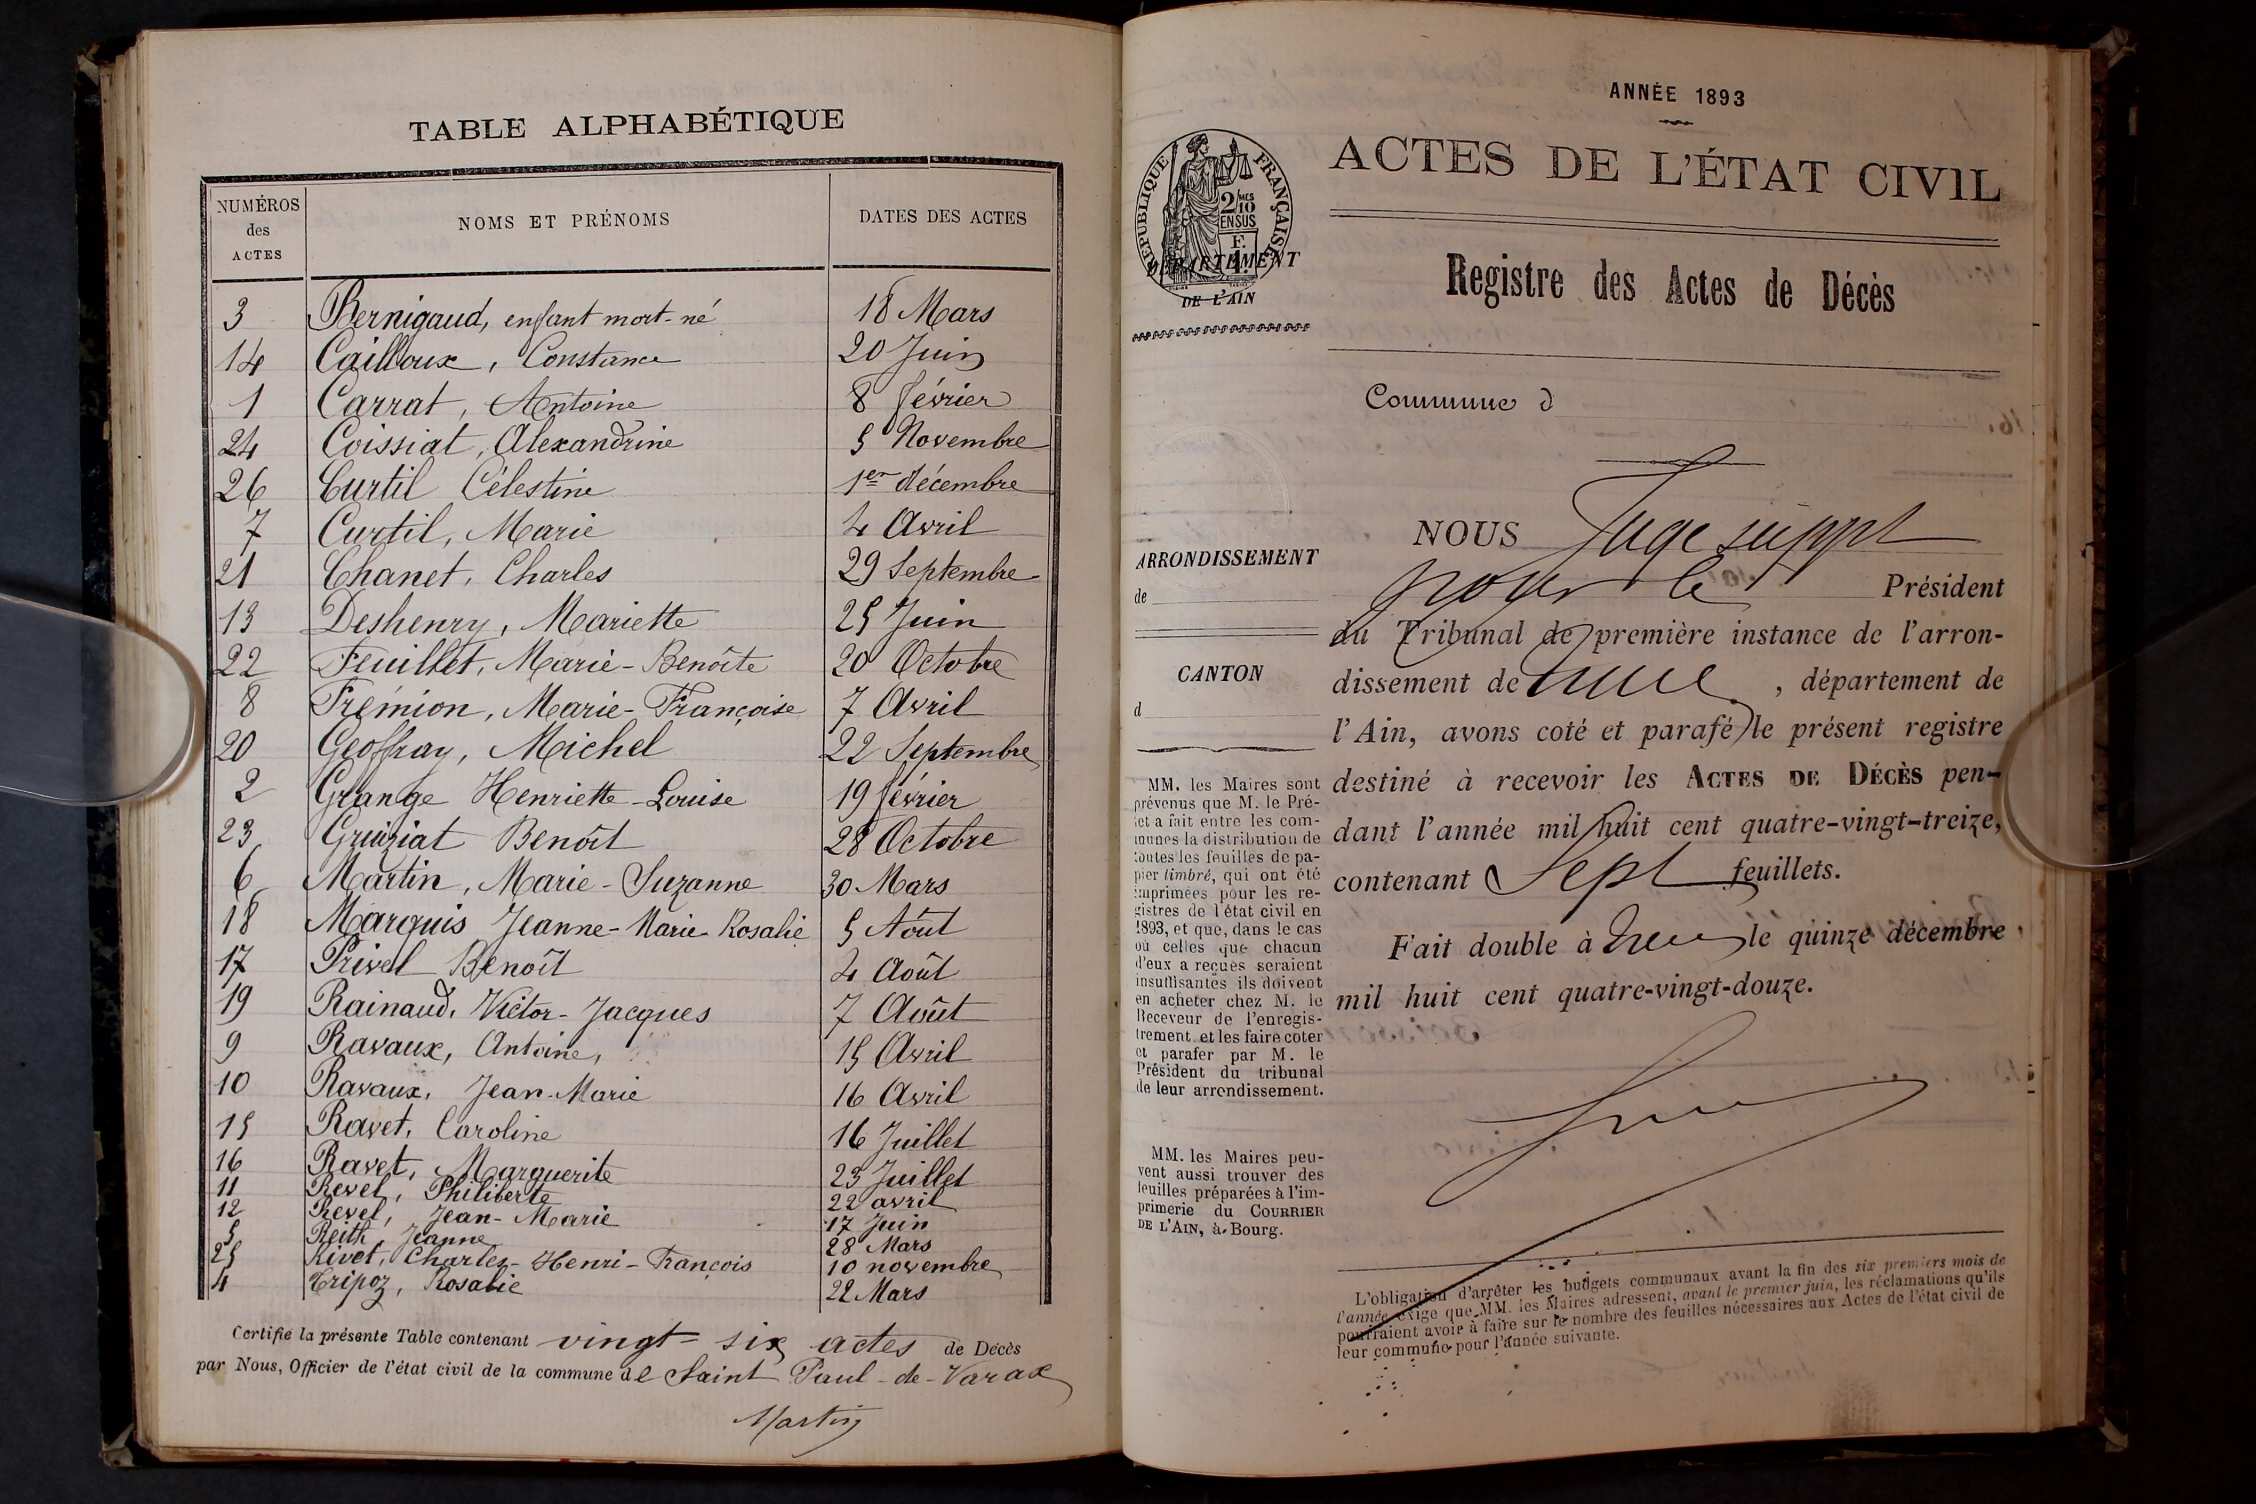 TABLE ALPHABÉTIQUE
NUMÉROS des ACTES NOMS ET PRÉNOMS DATES DES ACTES
3 Bernigaud, enfant mort-né 18 Mars
14 Cailloux, Constance 20 Juin
1 Carrat, Antoine 8 février
24 Coissiat, Alexandrine 5 Novembre
26 Curtil Célestine 1er décembre
7 Curtil, Marie 4 Avril
21 Chanet, Charles 29 Septembre
13 Deshenry, Mariette 25 Juin
22 Feuillet, Marie-Benoîte 20 Octobre
8 Frémion, Marie-Françoise 7 Avril
20 Geoffray, Michel 22 Septembre
2 Grange Henriette-Louise 19 février
23 Gruiziat Benoît 28 Octobre
6 Martin, Marie-Suzanne 30 Mars
18 Marquis Jeanne-Marie-Rosalie 5 Août
17 Privel Benoît 4 Août
19 Rainaud, Victor-Jacques 7 Août
9 Ravaux, Antoine, 15 Avril
10 Ravaux, Jean-Marie 16 Avril
15 Ravet, Caroline 16 Juillet
16 Ravet, Marguerite 23 Juillet
11 Revel, Philiberte 22 avril
12 Revel, Jean-Marie 17 Juin
5 Reith, Jeanne 28 Mars
25 Rivet, Charles-Henri-François 10 novembre
4 Tripoz, Rosalie 22 Mars
Certifié la présente Table contenant vingt-six actes de Décès
par Nous, Officier de l'état civil de la commune de Saint Paul-de-Varax
Martin
ANNÉE 1893
RÉPUBLIQUE FRANÇAISE
2 MES
10
EN SUS
F.
DÉPARTEMENT
DE L'AIN
ACTES DE L'ÉTAT CIVIL
Registre des Actes de Décès
Commune d
ARRONDISSEMENT
de
CANTON
d
MM. les Maires sont
prévenus que M. le Pré-
fet a fait entre les com-
munes la distribution de
toutes les feuilles de pa-
pier timbré, qui ont été
imprimées pour les re-
gistres de l'état civil en
1893, et que, dans le cas
où celles que chacun
d'eux a reçues seraient
insuffisantes ils doivent
en acheter chez M. le
Receveur de l'enregis-
trement et les faire coter
et parafer par M. le
Président du tribunal
de leur arrondissement.
MM. les Maires peu-
vent aussi trouver des
feuilles préparées à l'im-
primerie du COURRIER
DE L'AIN, à Bourg.
NOUS Juge suppt
pour le Président
du Tribunal de première instance de l'arron-
dissement de , département de
l'Ain, avons coté et parafé le présent registre
destiné à recevoir les ACTES DE DÉCÈS pen-
dant l'année mil huit cent quatre-vingt-treize,
contenant Sept feuillets.
Fait double à le quinze décembre
mil huit cent quatre-vingt-douze.
L'obligation d'arrêter les budgets communaux avant la fin des six premiers mois de
l'année exige que MM. les Maires adressent, avant le premier juin, les réclamations qu'ils
pourraient avoir à faire sur le nombre des feuilles nécessaires aux Actes de l'état civil de
leur commune pour l'année suivante.